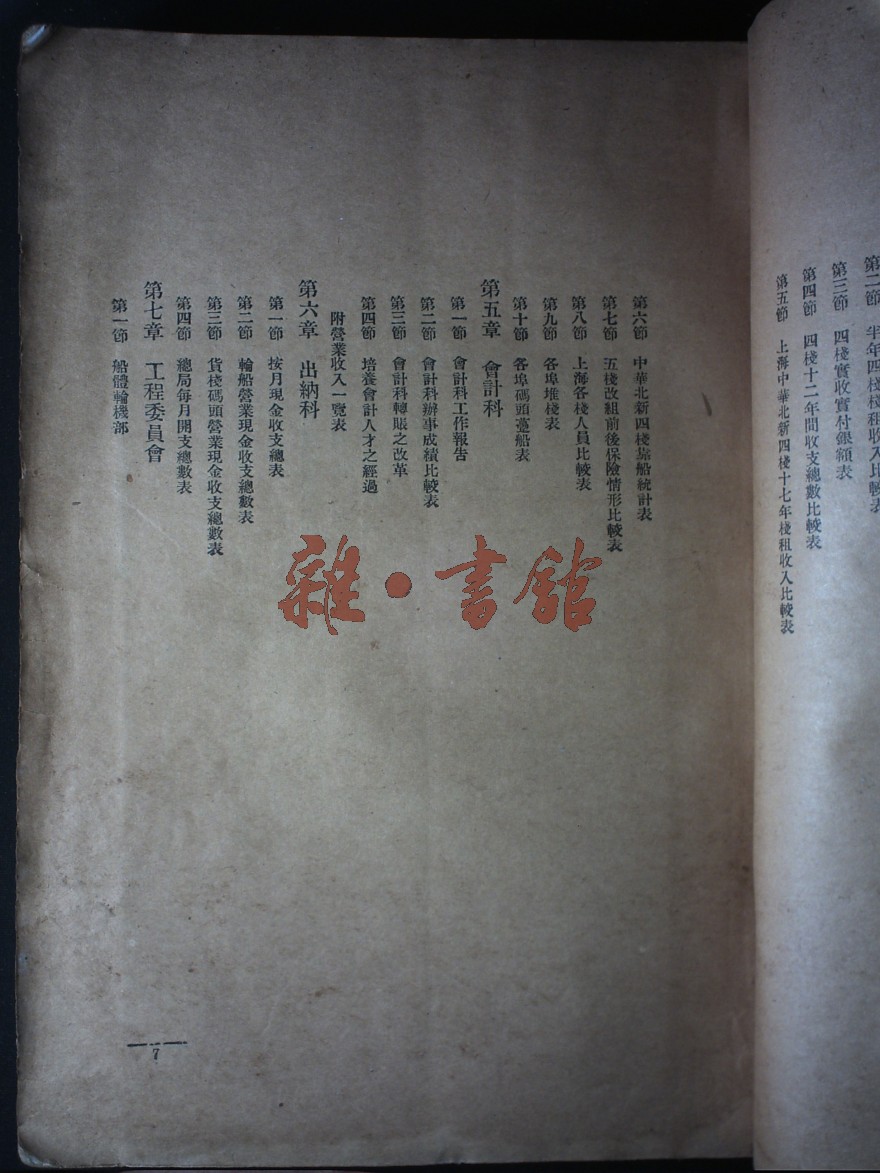 第二節 半年四棧棧租收入比較表
第三節 四棧實收實付銀額表
第四節 四棧十二年間收支總數比較表
第五節 上海中華北新四棧十七年棧租收入比較表
第六節 中華北新四棧靠船統計表
第七節 五棧改組前後保險情形比較表
第八節 上海各棧人員比較表
第九節 各埠堆棧表
第十節 各埠碼頭躉船表
第五章 會計科
第一節 會計科工作報告
第二節 會計科辦事成績比較表
第三節 會計科轉賬之改革
第四節 培養會計人才之經過
附營業收入一覽表
第六章 出納科
第一節 按月現金收支總表
第二節 輪船營業現金收支總數表
第三節 貨棧碼頭營業現金收支總數表
第四節 總局每月開支總數表
第七章 工程委員會
第一節 船體輪機部
7
雜·書館